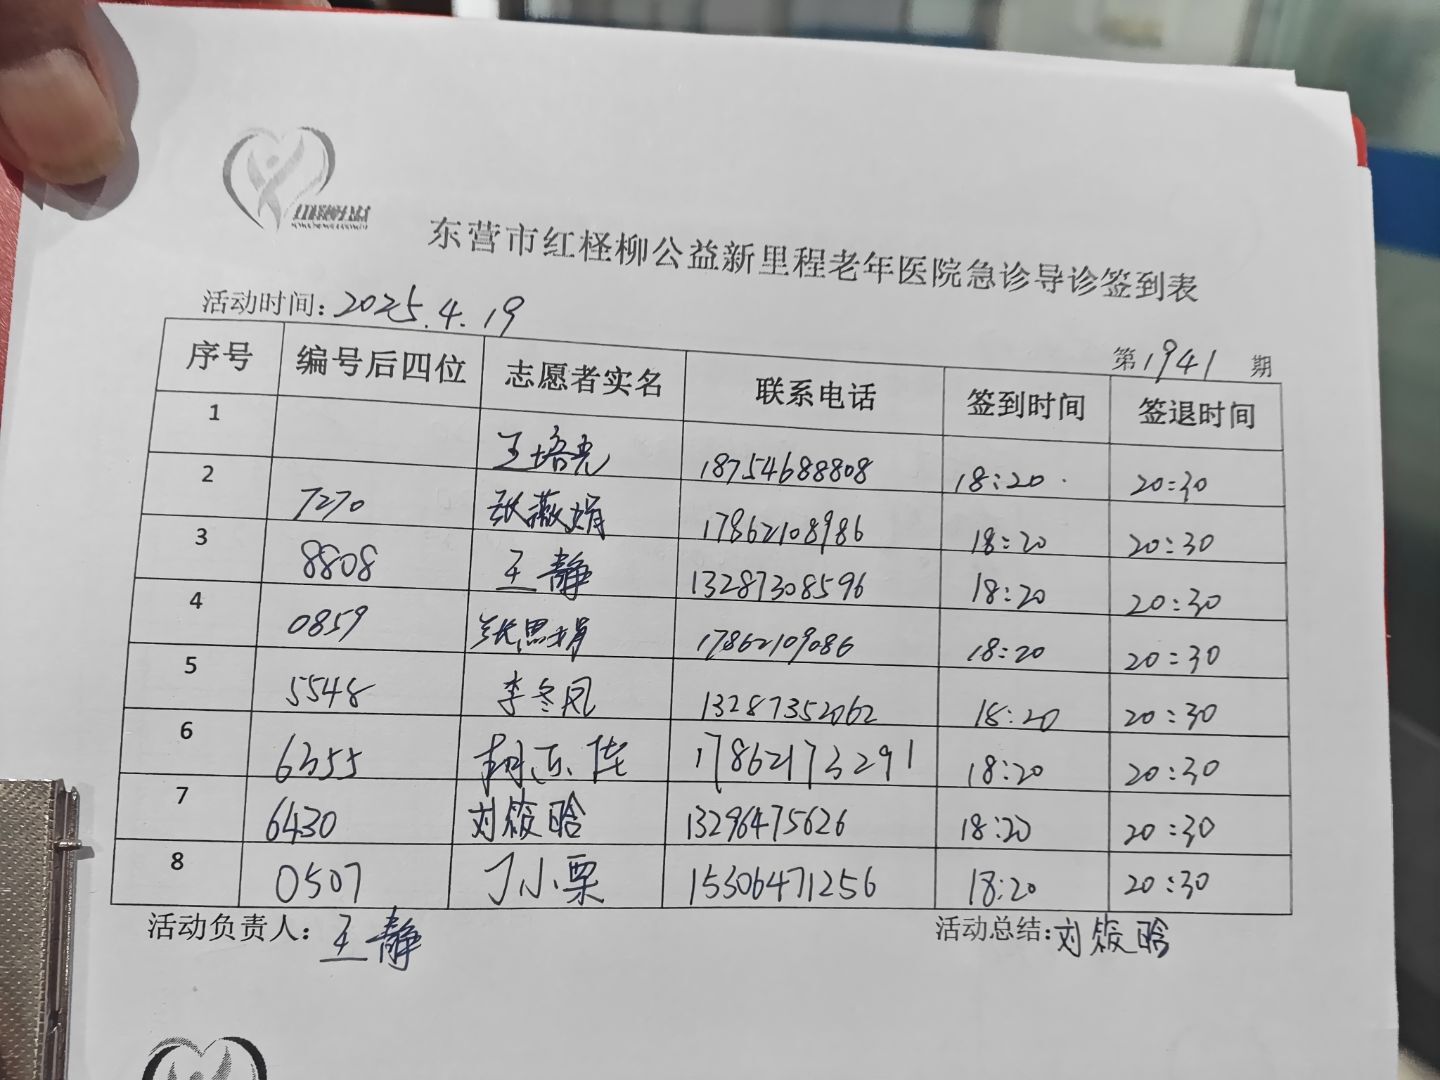 红柽柳公益
东营市红柽柳公益新里程老年医院急诊导诊签到表
活动时间：2025.4.19
第1941期
序号 编号后四位 志愿者实名 联系电话 签到时间 签退时间
1 王培亮 18754688808 18:20 20:30
2 7270 张薇娟 17862108986 18:20 20:30
3 8808 王静 13287308596 18:20 20:30
4 0859 张思娟 17862109086 18:20 20:30
5 5548 李冬凤 13287352062 18:20 20:30
6 6355 17862173291 18:20 20:30
7 6430 刘筱晗 13296475626 18:20 20:30
8 0507 丁小栗 15306471256 18:20 20:30
活动负责人：王静
活动总结：刘筱晗